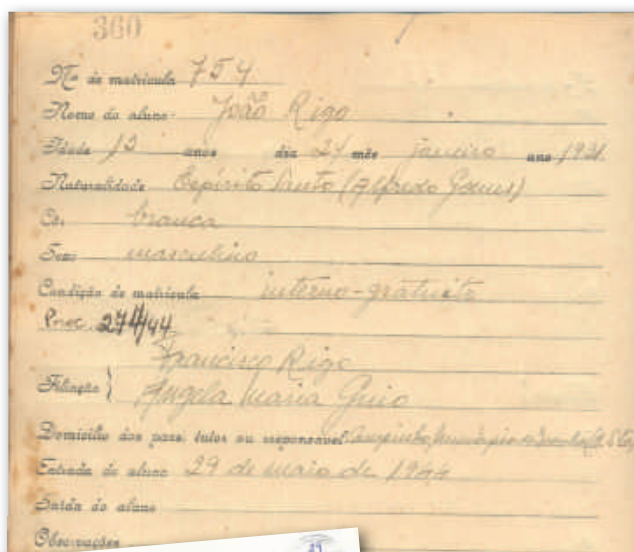 360
No de matricula 754
Nome do aluno João Rigo
Idade 13 anos dia 24 mês janeiro ano 1931
Naturalidade Espírito Santo (Alfredo Gomes)
Cor branca
Sexo masculino
Condição de matricula interno-gratuito
Proc. 274/44
Francisco Rigo
Filiação } Angela Maria Guio
Domicilio dos pais, tutor ou responsavel Campinho
Entrada do aluno 29 de maio de 1944
Saída do aluno
Observações